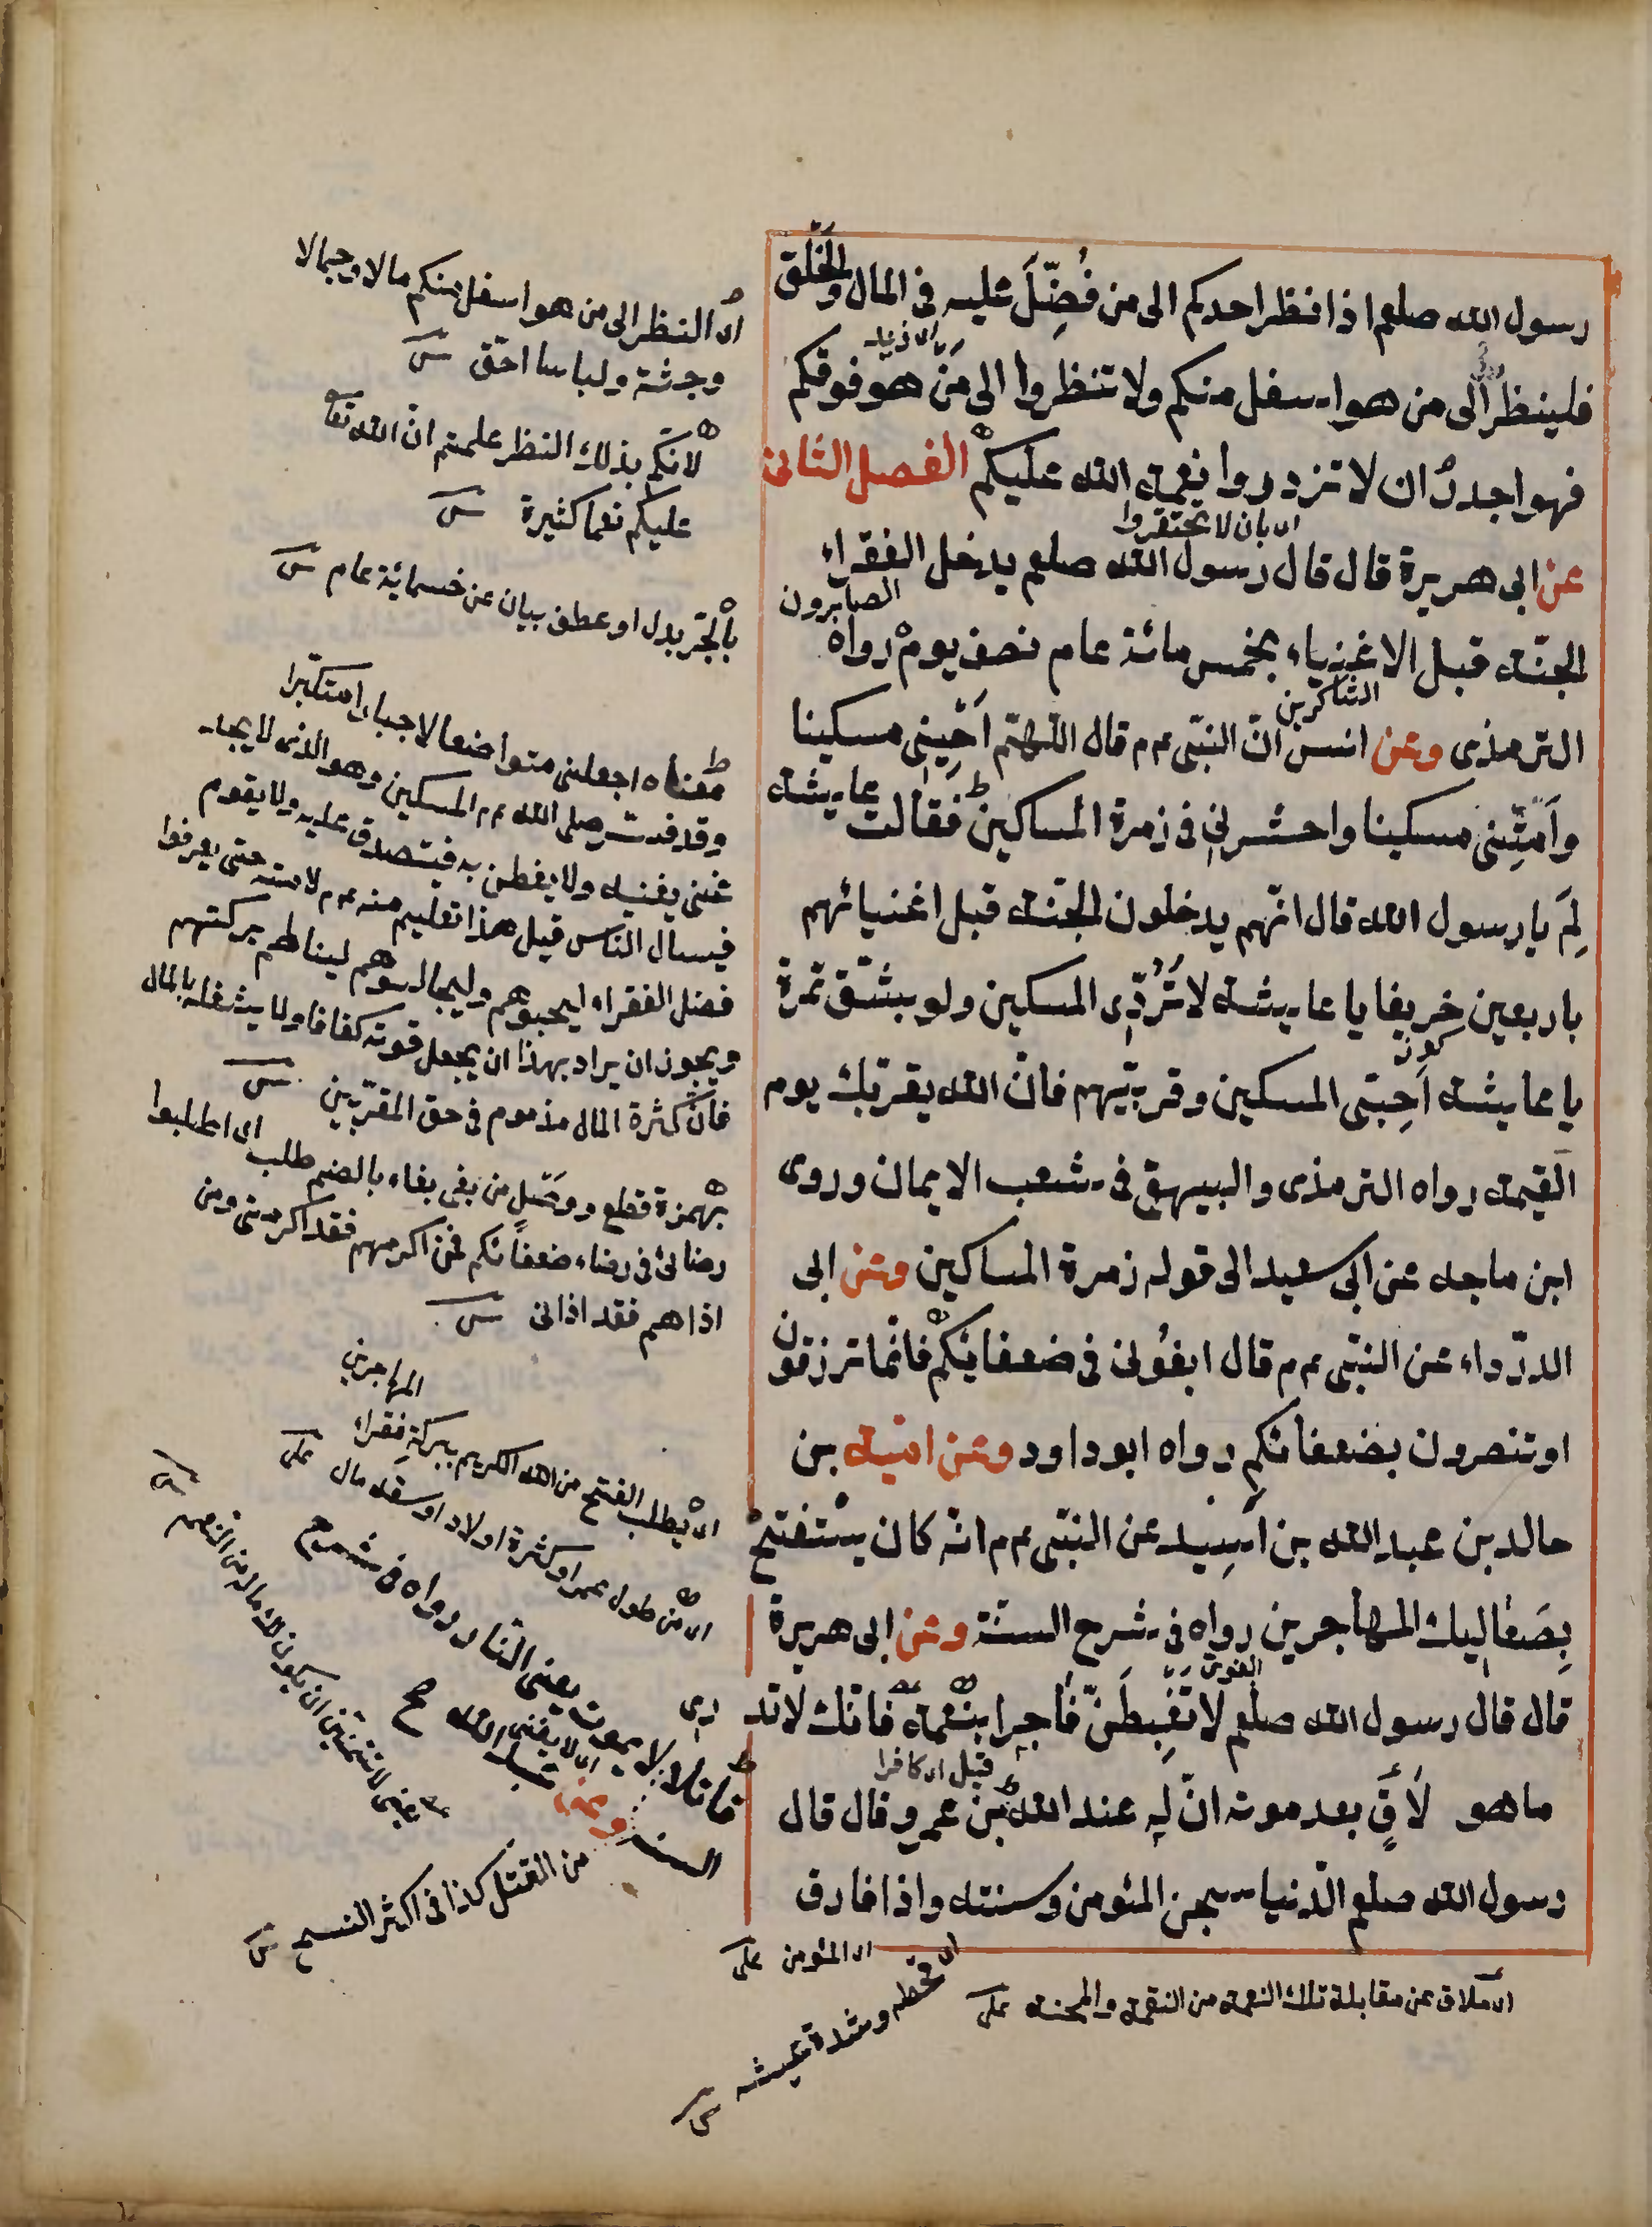 رسول الله صلعم اذا نظر احدكم الى من فُضِّلَ عليه فى المال والخَلْق
فلينظر الى من هو اسفل منكم ولا تنظروا الى مَنْ هو فوقكم
فهو اجدرُ ان لا تزدروا نعمة الله عليكم الفصل الثانى
اى بان لا تحتقروا
عن ابى هريرة قال قال رسول الله صلعم يدخل الفقراء
الصابرون
الجنّة قبل الاغنياء بخمس مائة عام نصف يوم رواه
الشاكرين
الترمذى وعن انس انّ النبّى عم قال اللهّم اَحْيِنِى مسكينا
واَمِتْنِى مسكينا واحشرنى فى زمرة المساكين فقالت عايشة
لِمَ يا رسول الله قال انّهم يدخلون الجنّة قبل اغنيائهم
باربعين خريفا يا عايشة لا تَرُدِّى المسكين ولو بشّق تمرة
يا عايشة اَحِبّى المسكين وقربّيهم فانّ الله يقربّك يوم
القيمة رواه الترمذى والبيهقى فى شعب الايمان وروى
ابن ماجه عن ابى سعيد الى قوله زمرة المساكين وعن ابى
الدرّداء عن النبّى عم قال ابغُونى فى ضعفائكم فانّما ترزقون
او تنصرون بضعفائكم رواه ابو داود وعن اميّة بن
خالد بن عبد الله بن اَسِيد عن النبّى عم انّه كان يستفتح
بِصَعَاليك المهاجرين رواه فى شرح السنّة وعن ابى هريرة
قال قال رسول الله صلعم لا تَغْبِطَنّ فاجرا بنعمة فانّك لا تد
رى
قيل اى كافرا
ما هو لَاقٍ بعد موته انّ له عند الله بن عمرو قال قال
رسول الله صلعم الدّنيا سجن المؤمن وسنته واذا فارق
اى النظر الى من هو اسفل منكم مالا وجمالا
وجثة ولباسا احقّ
لانكّم بذلك النظر علمتم انّ الله تعا
عليكم نعما كثيرة
بالجّر بدل او عطف بيان عن خسمائة عام
معناه اجعلنى متواضعا لا جبارا متكبّرا
وقد فسّر صلى الله عم المسكين وهو الذى لا يجد
غنى يغنيه ولا يفطن به فيتصدق عليه ولا يقوم
فيسال الناس قيل هذا تعليم منه عم لامته حتى يعرفوا
فضل الفقراء ليحبوهم وليجالسوهم لينالهم بركتهم
ويجوز ان يراد بهذا ان يجعل قوته كفافا ولا يشغله بالمال
فانّ كثرة المال مذموم فى حق المقرّبين
بهمزة قطع ووصل من بغى بغاء بالضم طلب اى اطلبوا
رضائى فى رضاء ضعفائكم فمن اكرمهم فقد اكرمنى ومن
اذاهم فقد اذانى
اى يطلب الفتح من الله الكريم ببركة فقراء المهاجرين
اى من طول عمر او كثرة اولاد او سعة مال
قاتلا لا يموت يعنى النّار رواه فى شرح
السنة وعن عبد الله صح
اى لا يفنى
يعنى لا تتمنّين ان يكون لك ماله من النعمة
من القتل كذا فى اكثر النسخ
اى المؤمن
اى ملاق عن مقابلة تلك النعمة من النقمة والمحنة
اى قحطه وشدة عيشه